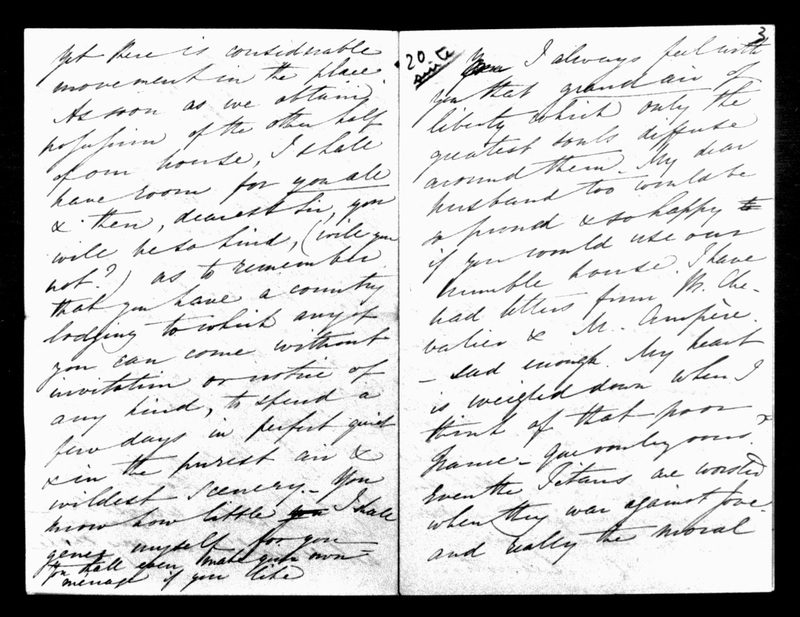 yet there is considerable
movement in the place.
As soon as we obtain
possession of the other half
of our house, I shall
have room for you all
& then, dearest Sir, you
will be so kind, (will you
not?) as to remember
that you have a country
lodging to which any of
you can come without
invitation or notice of
any kind, to spend a
few days in perfect quiet
& in the purest air &
wildest scenery. You
know how little you I shall
gêner myself for you
you shall even make your own
ménage if you like
3
20
suite
I always feel with
you that grand air of
liberty which only the
greatest souls diffuse
around them. My dear
husband too would be
so proud & so happy to
if you would use our
humble house. I have
had letters from M. Che-
valier & M. Ampère.
- sad enough. My heart
is weighed down when I
think of that poor
France -
Even the Titans are worsted
when they war against Jove.
and really the moral